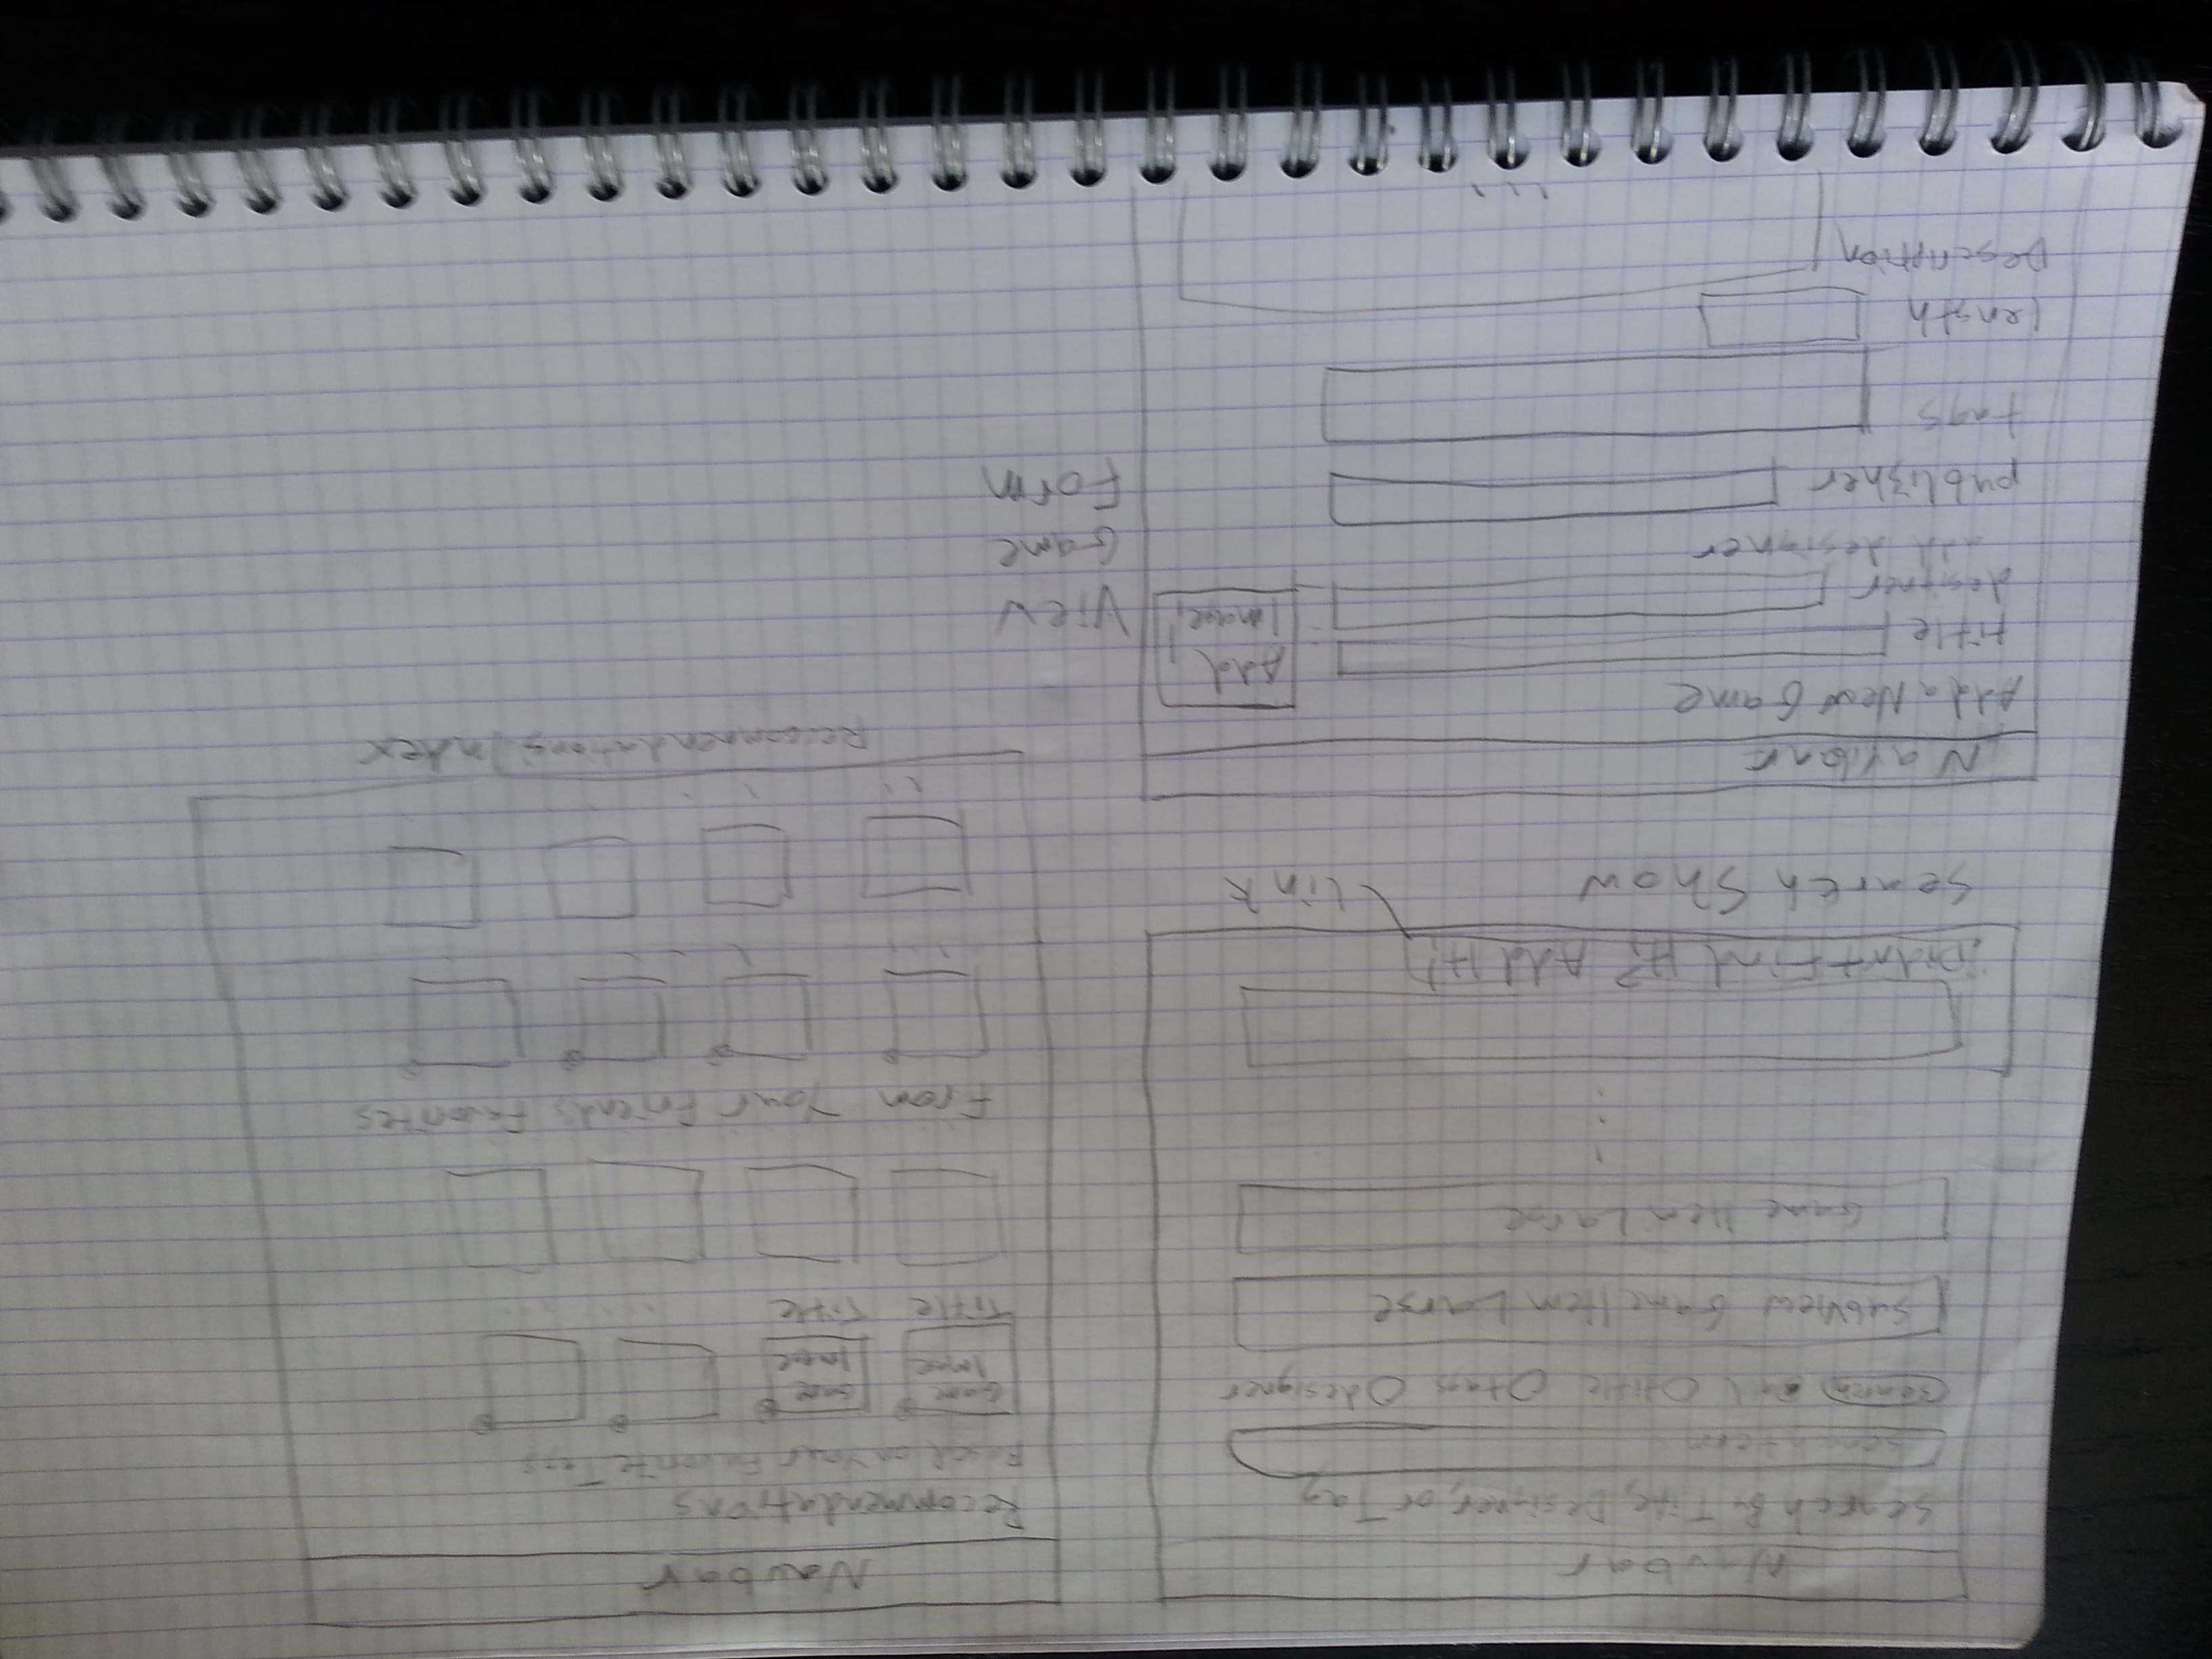 Navbar
Search By Title, Designer, or Tag
search term
search all title tags designer
Subview GameItemLarge
GameItemLarge
Didn't Find It? Add It!
link
Search Show
Navbar
Recommendations
Based on Your Favorite Tags
Game Image
Game Image
Title Title
From Your Friends Favorites
Recommendations Index
Navbar
Add a New Game
Add Image
title
designer
add designer
publisher
tags
length
Description
View Game Form